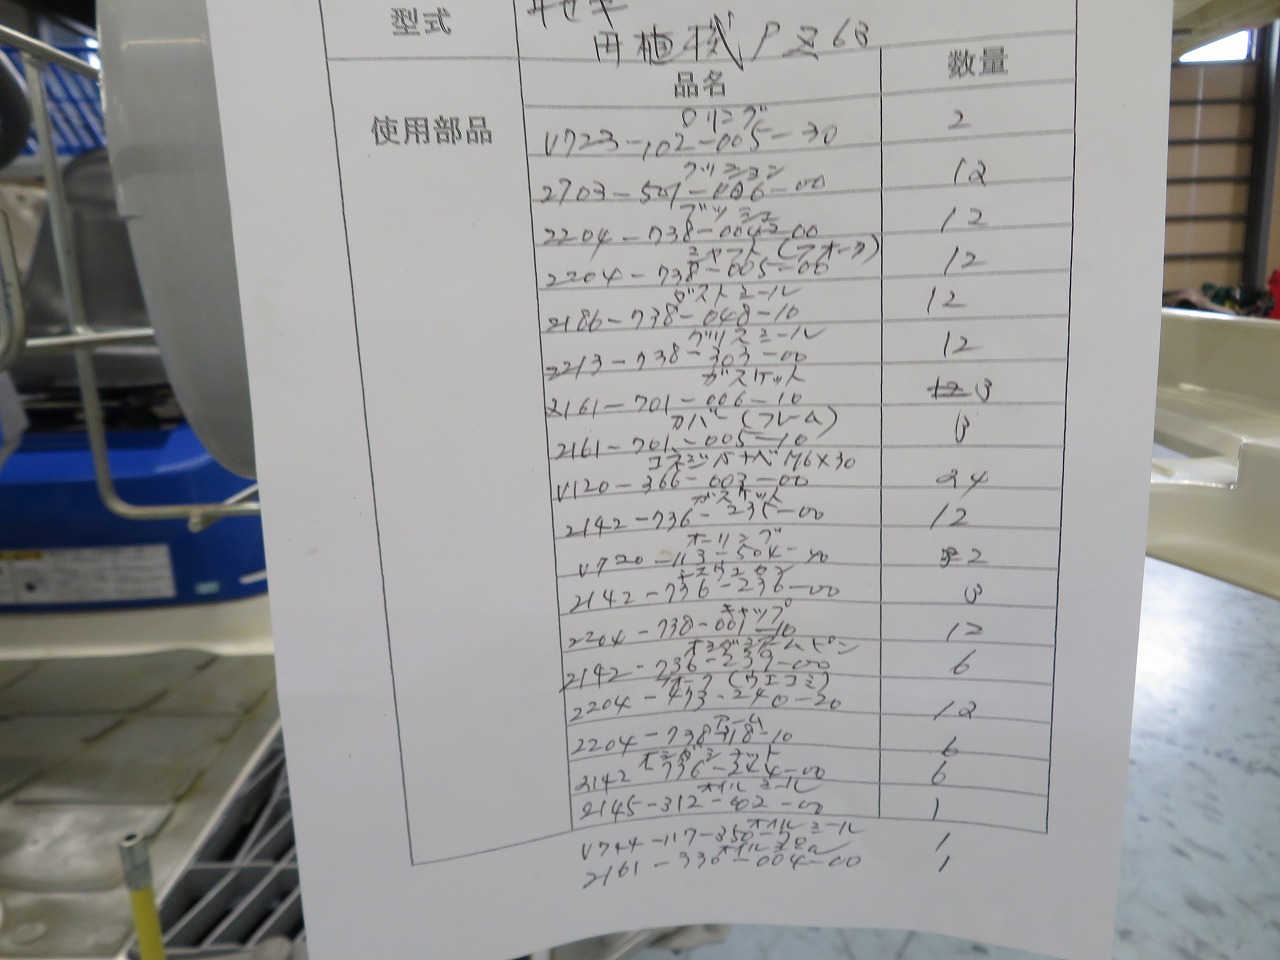 型式
田植機 PZ63
品名 数量
使用部品
Oリング
V723-102-005-30 2
クッション
2703-501-006-00 12
ブッシュ
2204-738-004-00 12
シャフト(フォーク)
2204-738-005-00 12
ダストシール
2186-738-048-10 12
グリスシール
2213-738-303-00 12
ガスケット
2161-701-006-10 12 3
カバー(フレーム)
2161-701-005-10 3
コネジバナベM6×30
V120-366-003-00 24
ガスケット
2142-736-235-00 12
オーリング
2
2142-736-236-00 3
キャップ
2204-738-001-10 12
2142-736-239-00 6
フォーク(ウエコミ)
2204-473-240-20 12
アーム
2204-738-718-10 6
ナット
2142-736-244-00 6
オイルシール
2145-312-402-00 1
オイルシール
1
2161-330-004-00 1